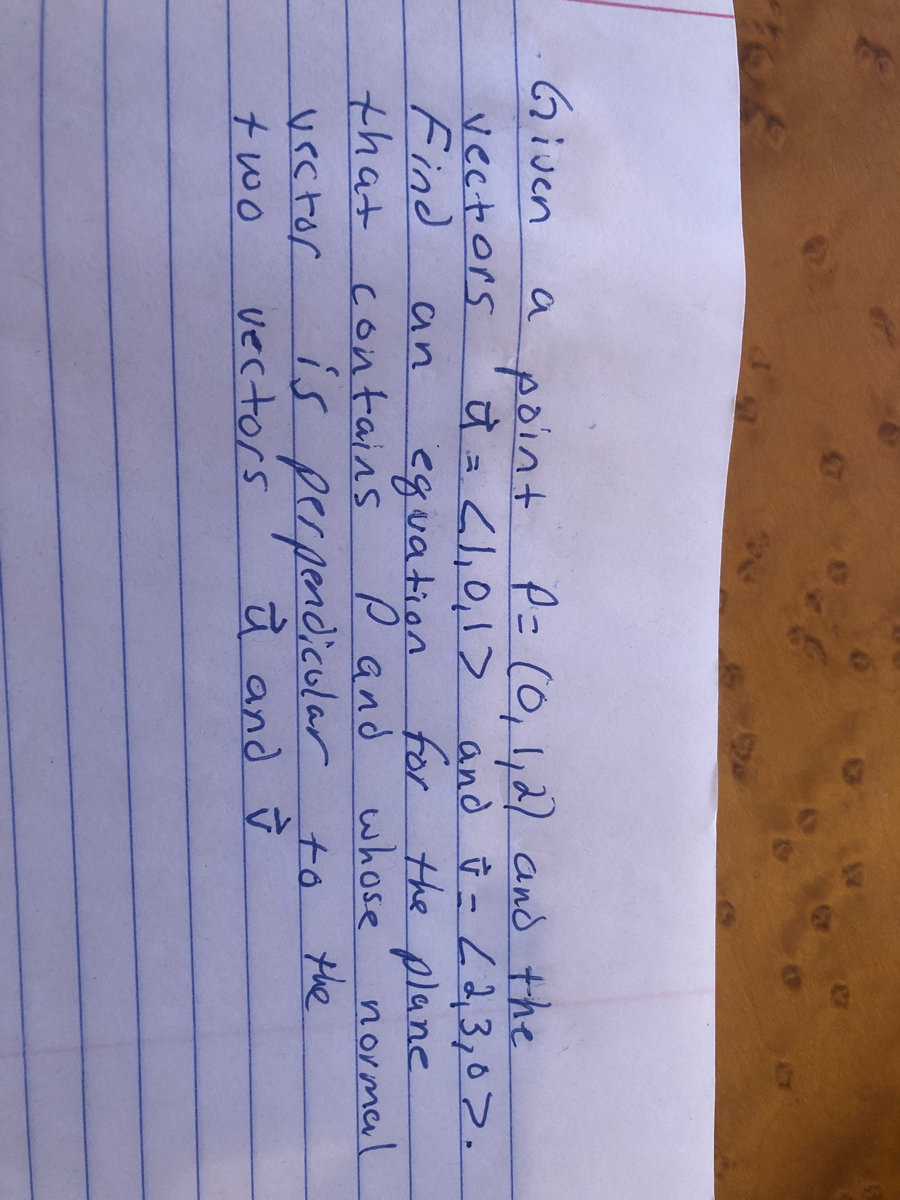 Given a point P=(0,1,2) and the
vectors u⃗=<1,0,1> and v⃗=<2,3,0>.
Find an equation for the plane
that contains P and whose normal
vector is perpendicular to the
two vectors u⃗ and v⃗